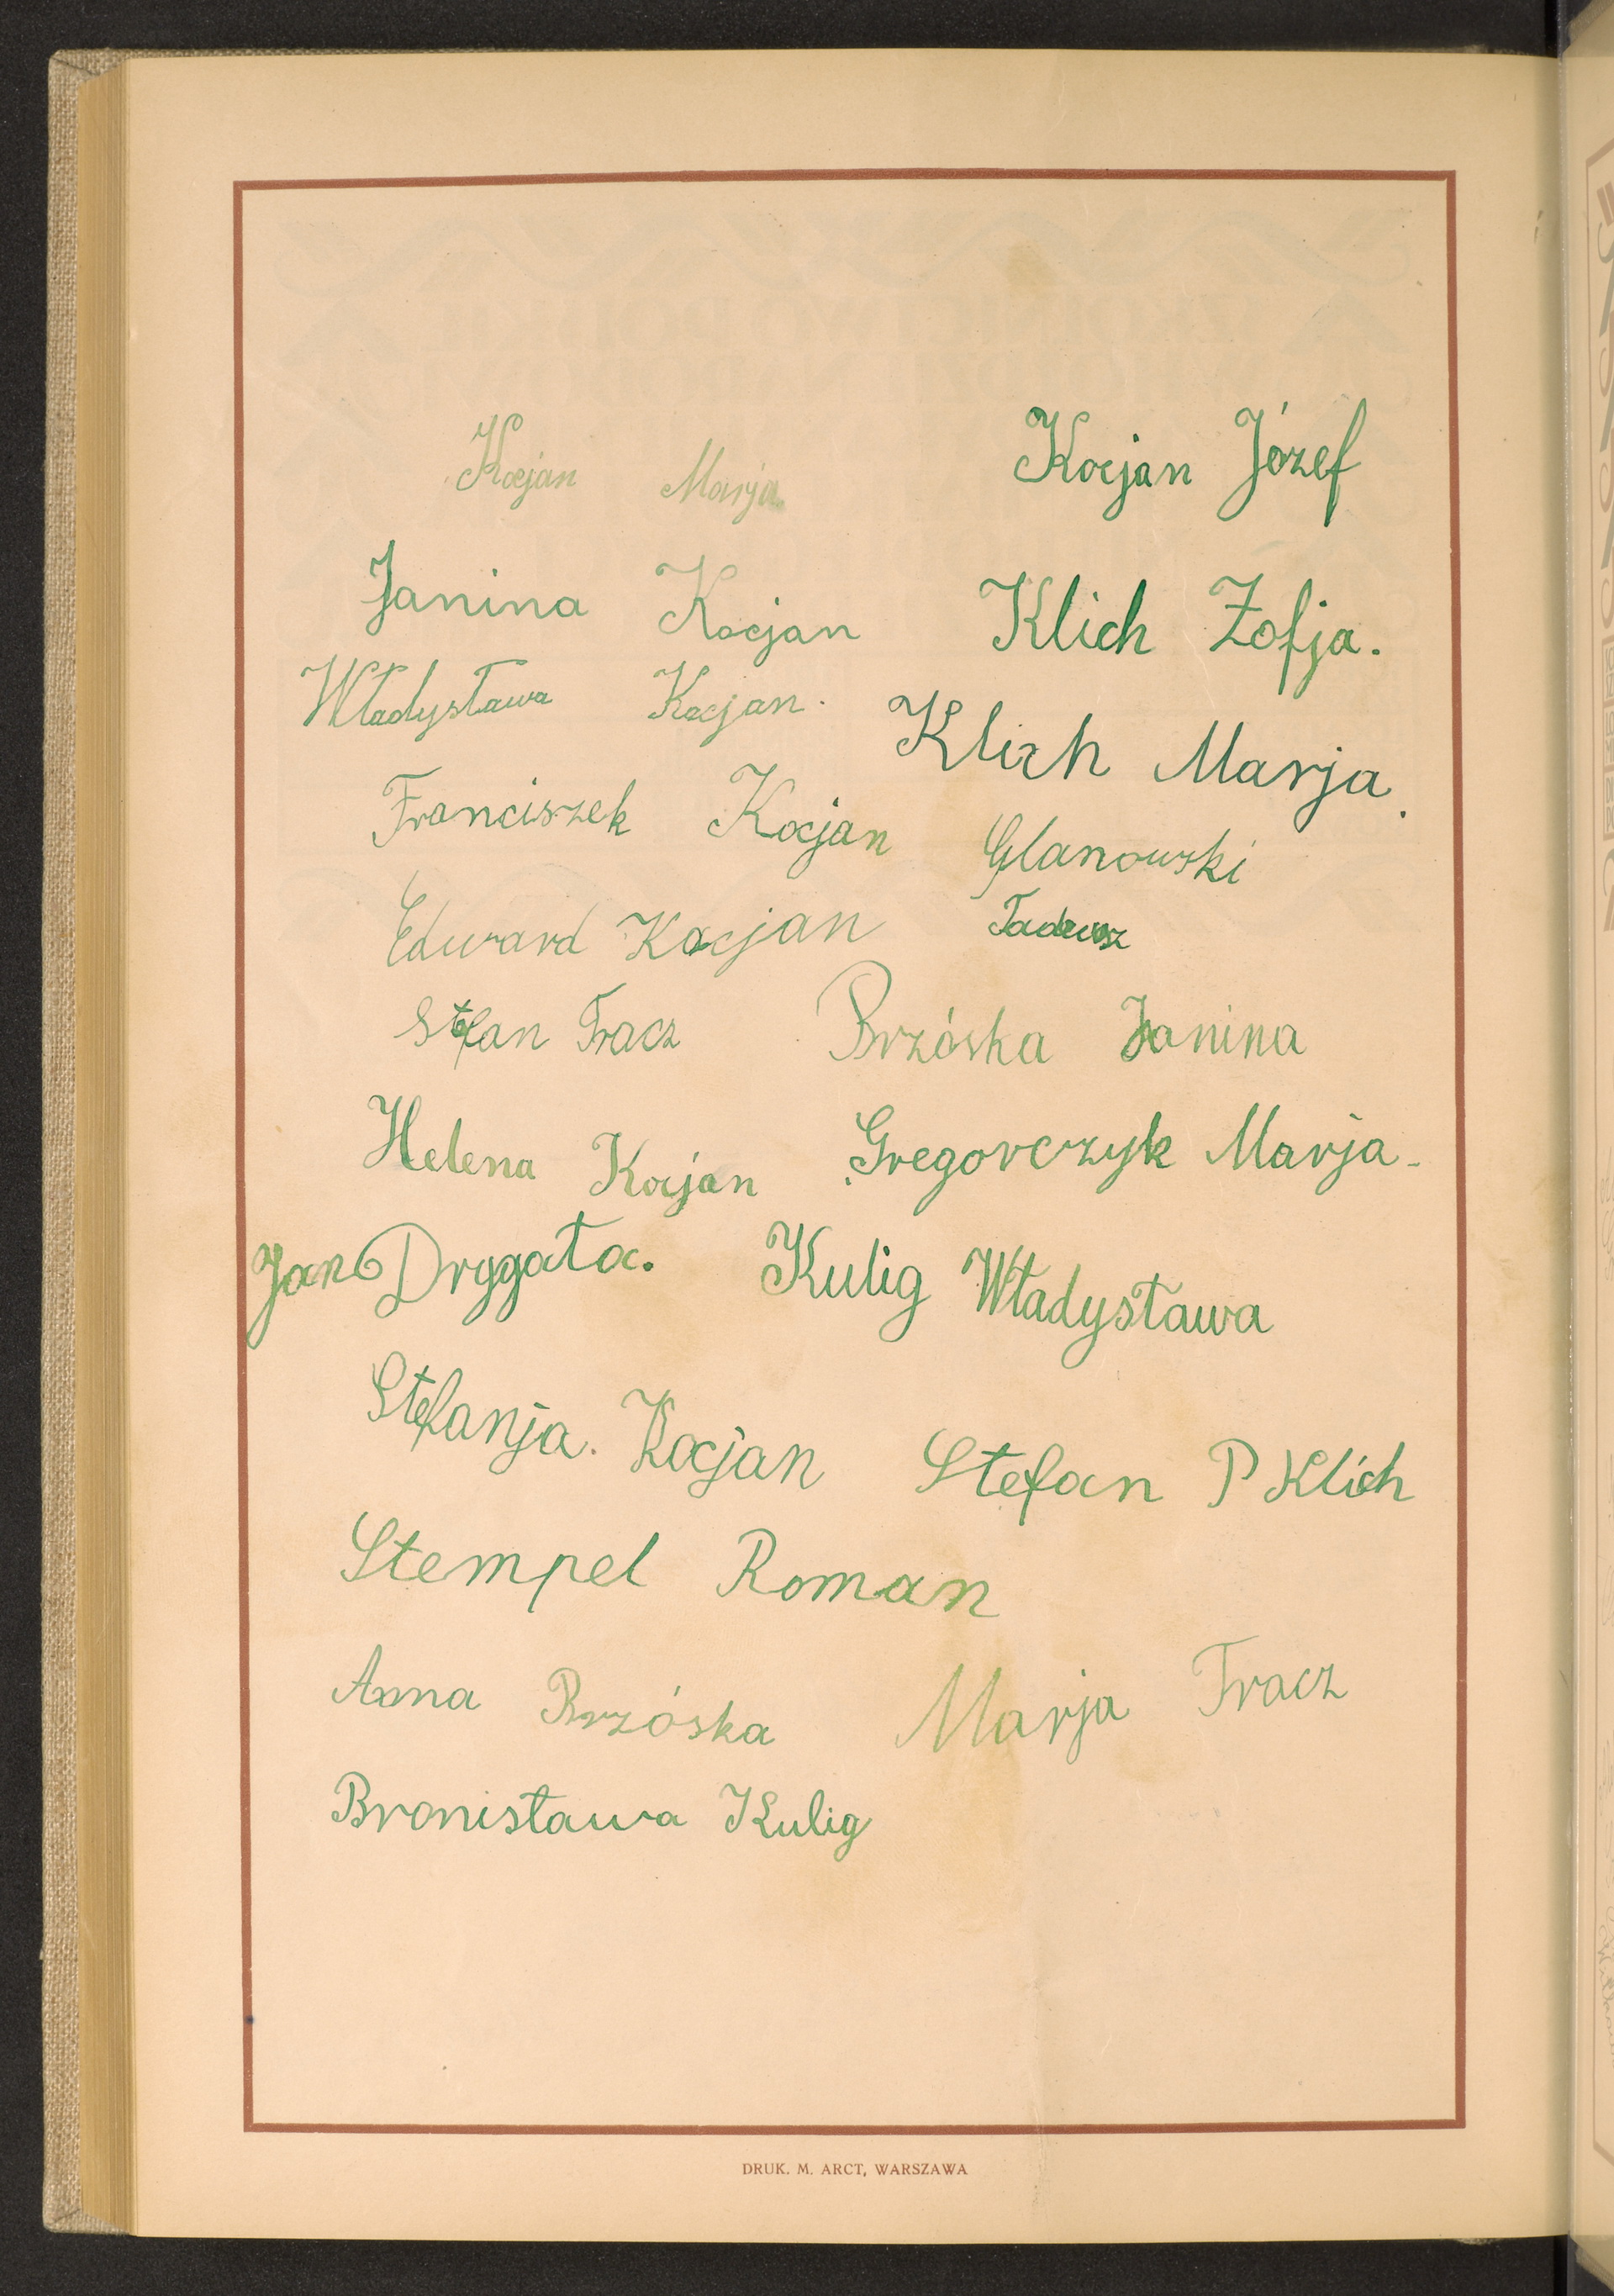 Kocjan Marja
Kocjan Józef
Janina Kocjan
Klich Zofja.
Władysława Kocjan.
Klich Marja.
Franciszek Kocjan
Glanowski
Tadeusz
Edward Kocjan
Stefan Tracz
Brzóska Janina
Helena Kocjan
Gregorczyk Marja
Jan Drygała.
Kulig Władysława
Stefanja. Kocjan
Stefan P Klich
Stempel Roman
Anna Brzóska
Marja Tracz
Bronisława Kulig
DRUK. M. ARCT, WARSZAWA